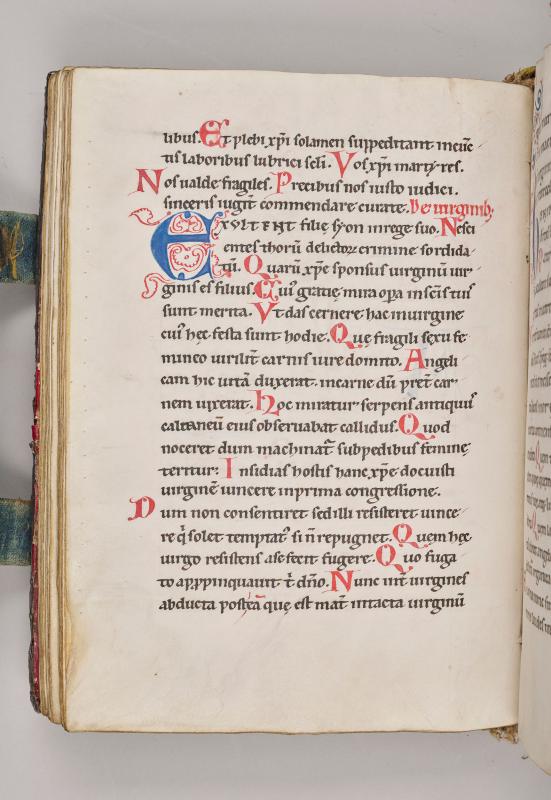 libus. Et plebi xp̄i solamen suppeditant meūe
tis laboribus lubrici sc̄li. Vos xp̄i martyres.
Nos ualde fragiles. Precibus nos iusto iudici.
sinceris iugit̄ commendare curate. De uirginib;
EXVLTENT filię syon in rege suo. Nesci
entes thorū delictoꝝ crimine sordida
tū. Quarū xp̄e sponsus uirginū uir
ginis es filius. Cuiꝰ gratię mira oꝑa in sc̄is tuis
sunt merita. Vt das cernere hac in uirgine
cuiꝰ hęc festa sunt hodie. Quę fragili sexu fe
mineo uirilit̄ carnis iure domito. Angeli
cam hic uitā duxerat. in carne dū pręt̄ car
nem uixerat. Hoc miratur serpens antiquus
calcaneū eius obseruabat callidus. Quod
noceret dum machinat̄ sub pedibus feminę
teritur: Insidias hostis hanc xp̄e docuisti
uirginē uincere in prima congressione.
Dum non consentiret sed illi resisteret uince
re q̄ solet temptatꝰ si n̄ repugnet. Quem hęc
uirgo resistens a se fecit fugere. Quo fuga
to apꝓpinquauit t̄ dn̄o. Nunc int̄ uirgines
abducta post eā quę est mat̄ intacta uirginū